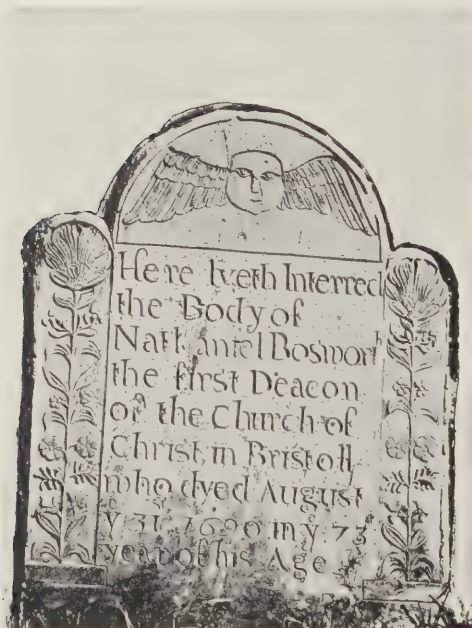 Here lyeth Interred
the Body of
Nathaniel Bosworth
the first Deacon
of the Church of
Christ in Bristoll
who dyed August
yͤ 31 1690 in yͤ 73ᵈ
year of his Age